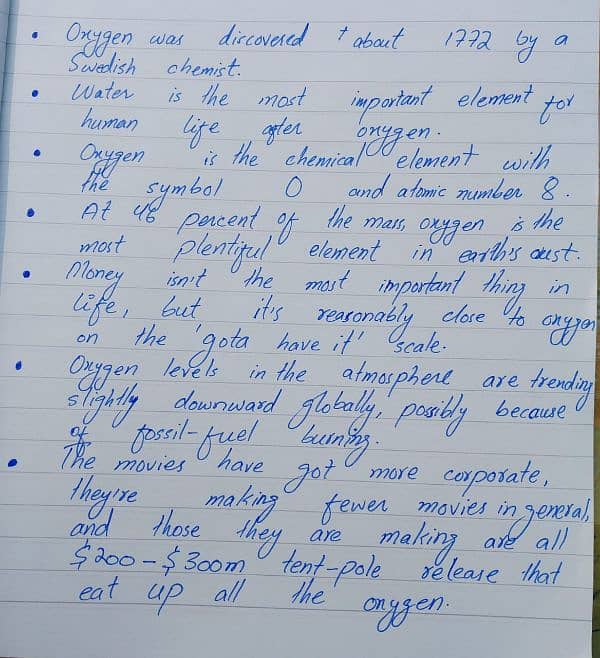 • Oxygen was discovered about 1772 by a
Swedish chemist.
• Water is the most important element for
human life after oxygen.
• Oxygen is the chemical element with
the symbol O and atomic number 8.
• At 46 percent of the mass, oxygen is the
most plentiful element in earth's cust.
• Money isn't the most important thing in
life, but it's reasonably close to oxygen
on the 'gota have it' scale.
• Oxygen levels in the atmosphere are trending
slightly downward globally, possibly because
of fossil-fuel burning.
• The movies have got more corporate,
they're making fewer movies in general,
and those they are making are all
$200-$300m tent-pole release that
eat up all the oxygen.